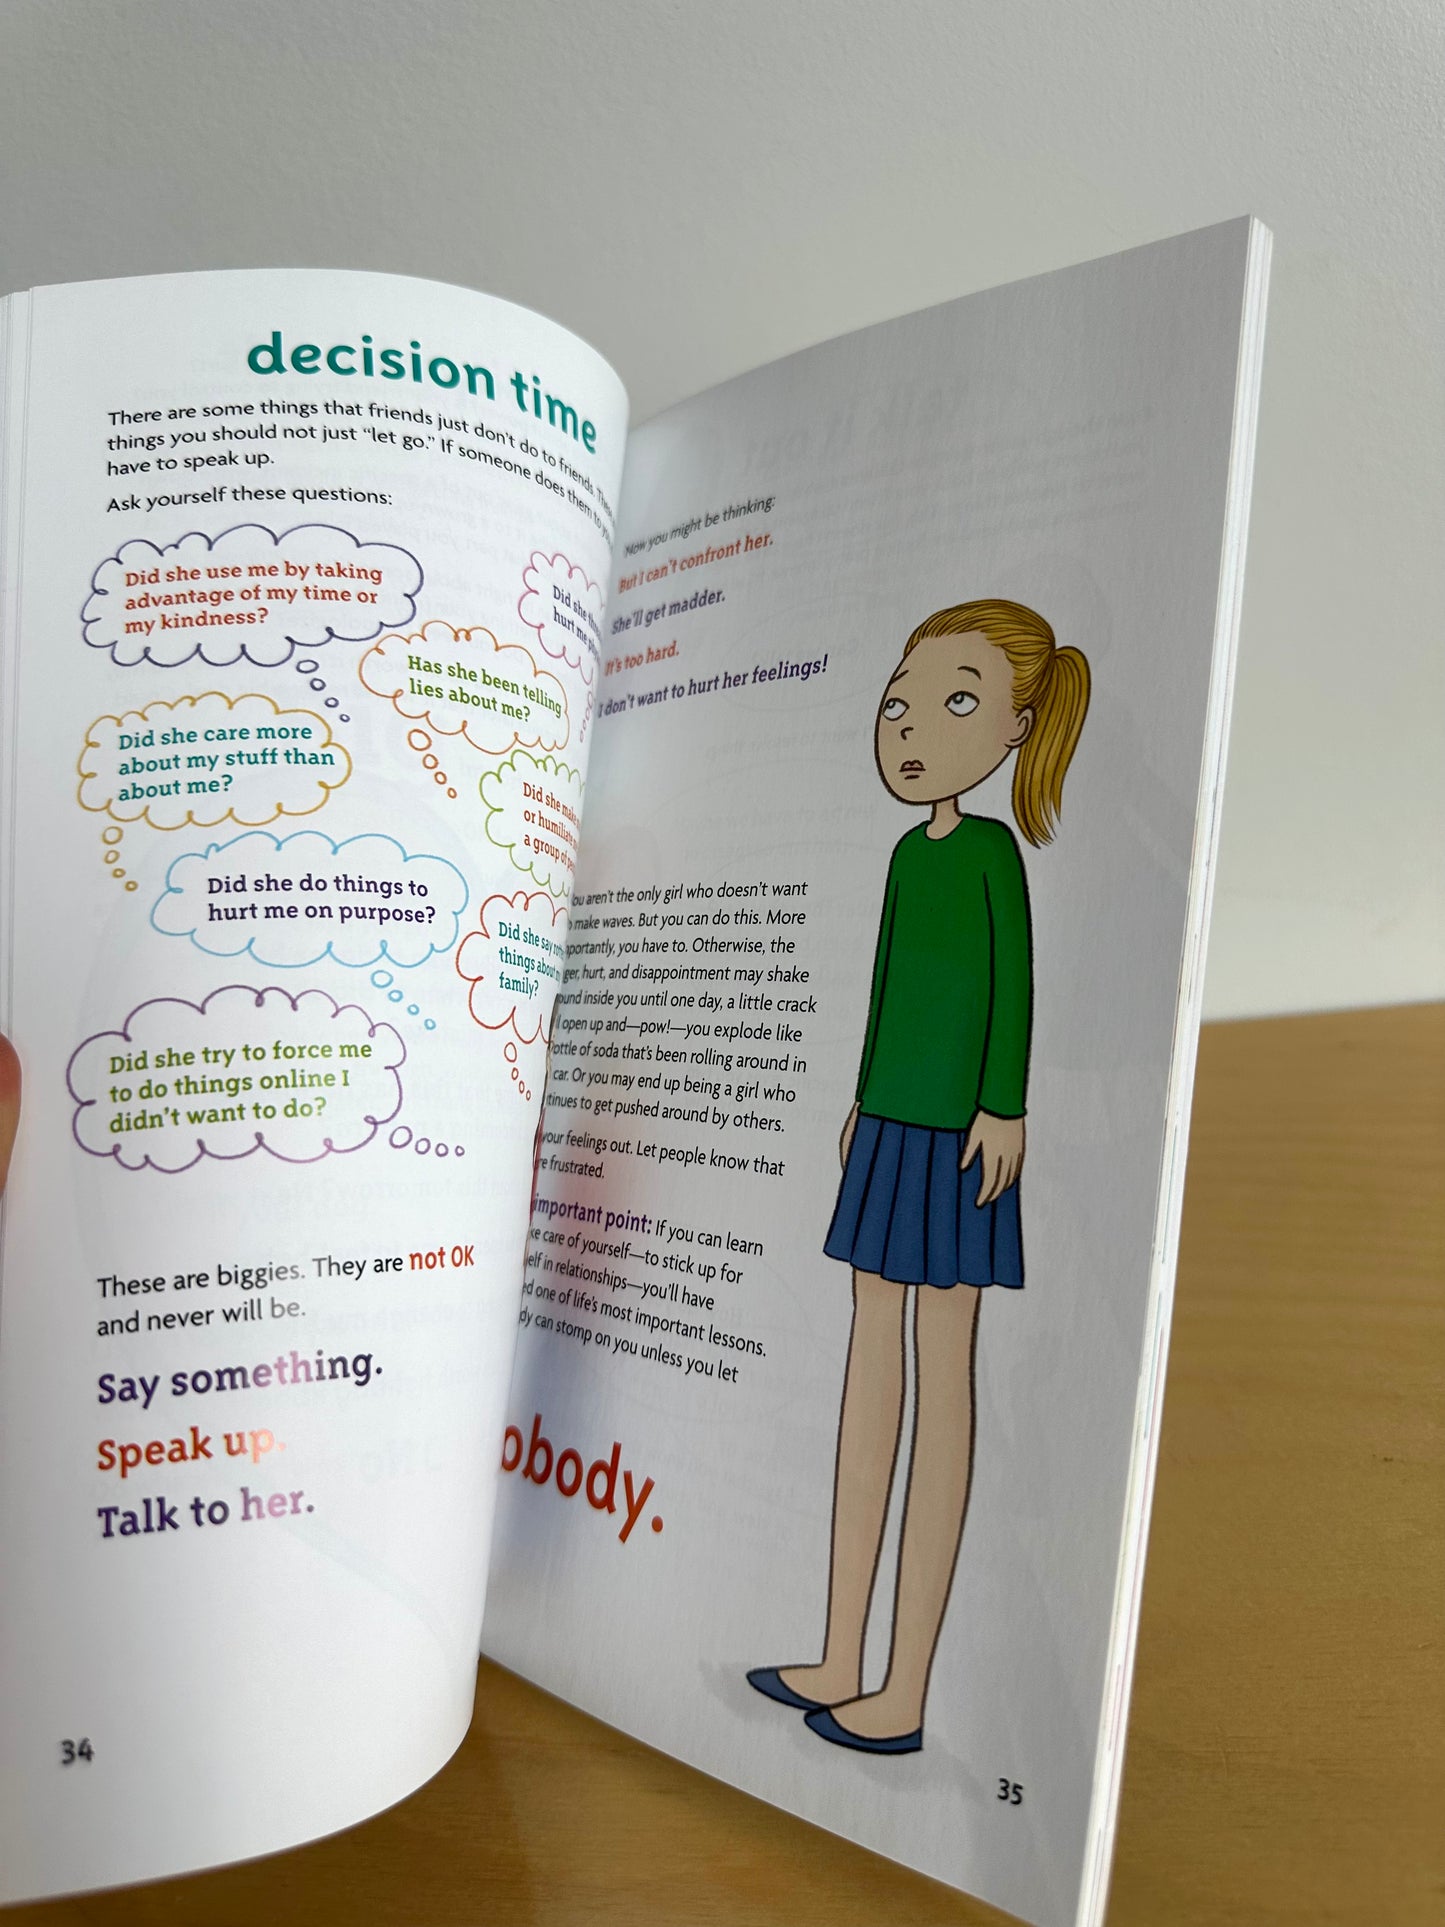 decision time
There are some things that friends just don't do to friends. These
things you should not just "let go." If someone does them to you
have to speak up.
Ask yourself these questions:
Did she use me by taking
advantage of my time or
my kindness?
Did she
hurt me
Has she been telling
lies about me?
Did she care more
about my stuff than
about me?
Did she make
or humiliate
a group of
Did she do things to
hurt me on purpose?
Did she say
things about
family?
Did she try to force me
to do things online I
didn't want to do?
These are biggies. They are not OK
and never will be.
Say something.
Speak up.
Talk to her.
34
Now you might be thinking:
But I can't confront her.
She'll get madder.
It's too hard.
I don't want to hurt her feelings!
ou aren't the only girl who doesn't want
make waves. But you can do this. More
portantly, you have to. Otherwise, the
ger, hurt, and disappointment may shake
ound inside you until one day, a little crack
l open up and—pow!—you explode like
ottle of soda that's been rolling around in
car. Or you may end up being a girl who
tinues to get pushed around by others.
your feelings out. Let people know that
re frustrated.
important point: If you can learn
ke care of yourself—to stick up for
elf in relationships—you'll have
ed one of life's most important lessons.
dy can stomp on you unless you let
obody.
35